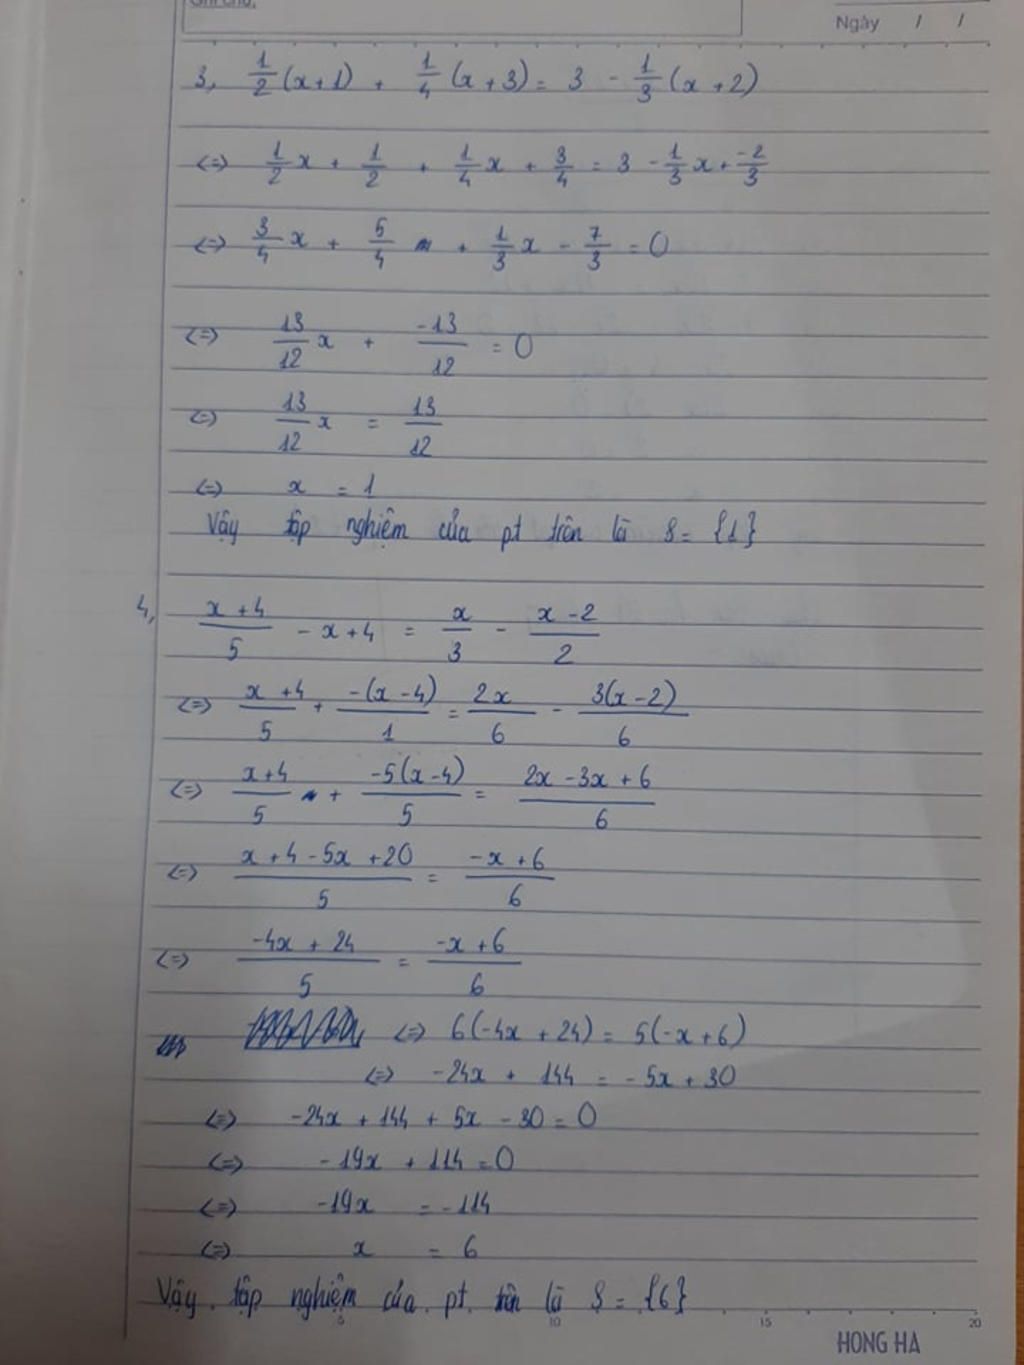 Ghi chú:
Ngày / /
3, 1/2 (x+1) + 1/4 (x+3) = 3 - 1/3 (x+2)
<=> 1/2 x + 1/2 + 1/4 x + 3/4 = 3 - 1/3 x + -2/3
<=> 3/4 x + 5/4 + 1/3 x - 7/3 = 0
<=> 13/12 x + -13/12 = 0
<=> 13/12 x = 13/12
<=> x = 1
Vậy tập nghiệm của pt trên là S = {1}
4, (x+4)/5 - x + 4 = x/3 - (x-2)/2
<=> (x+4)/5 + -(x-4)/1 = 2x/6 - 3(x-2)/6
<=> (x+4)/5 + -5(x-4)/5 = (2x-3x+6)/6
<=> (x+4-5x+20)/5 = (-x+6)/6
<=> (-4x+24)/5 = (-x+6)/6
<=> 6(-4x+24) = 5(-x+6)
<=> -24x + 144 = -5x + 30
<=> -24x + 144 + 5x - 30 = 0
<=> -19x + 114 = 0
<=> -19x = -114
<=> x = 6
Vậy tập nghiệm của pt trên là S = {6}
5 10 15 20
HONG HA